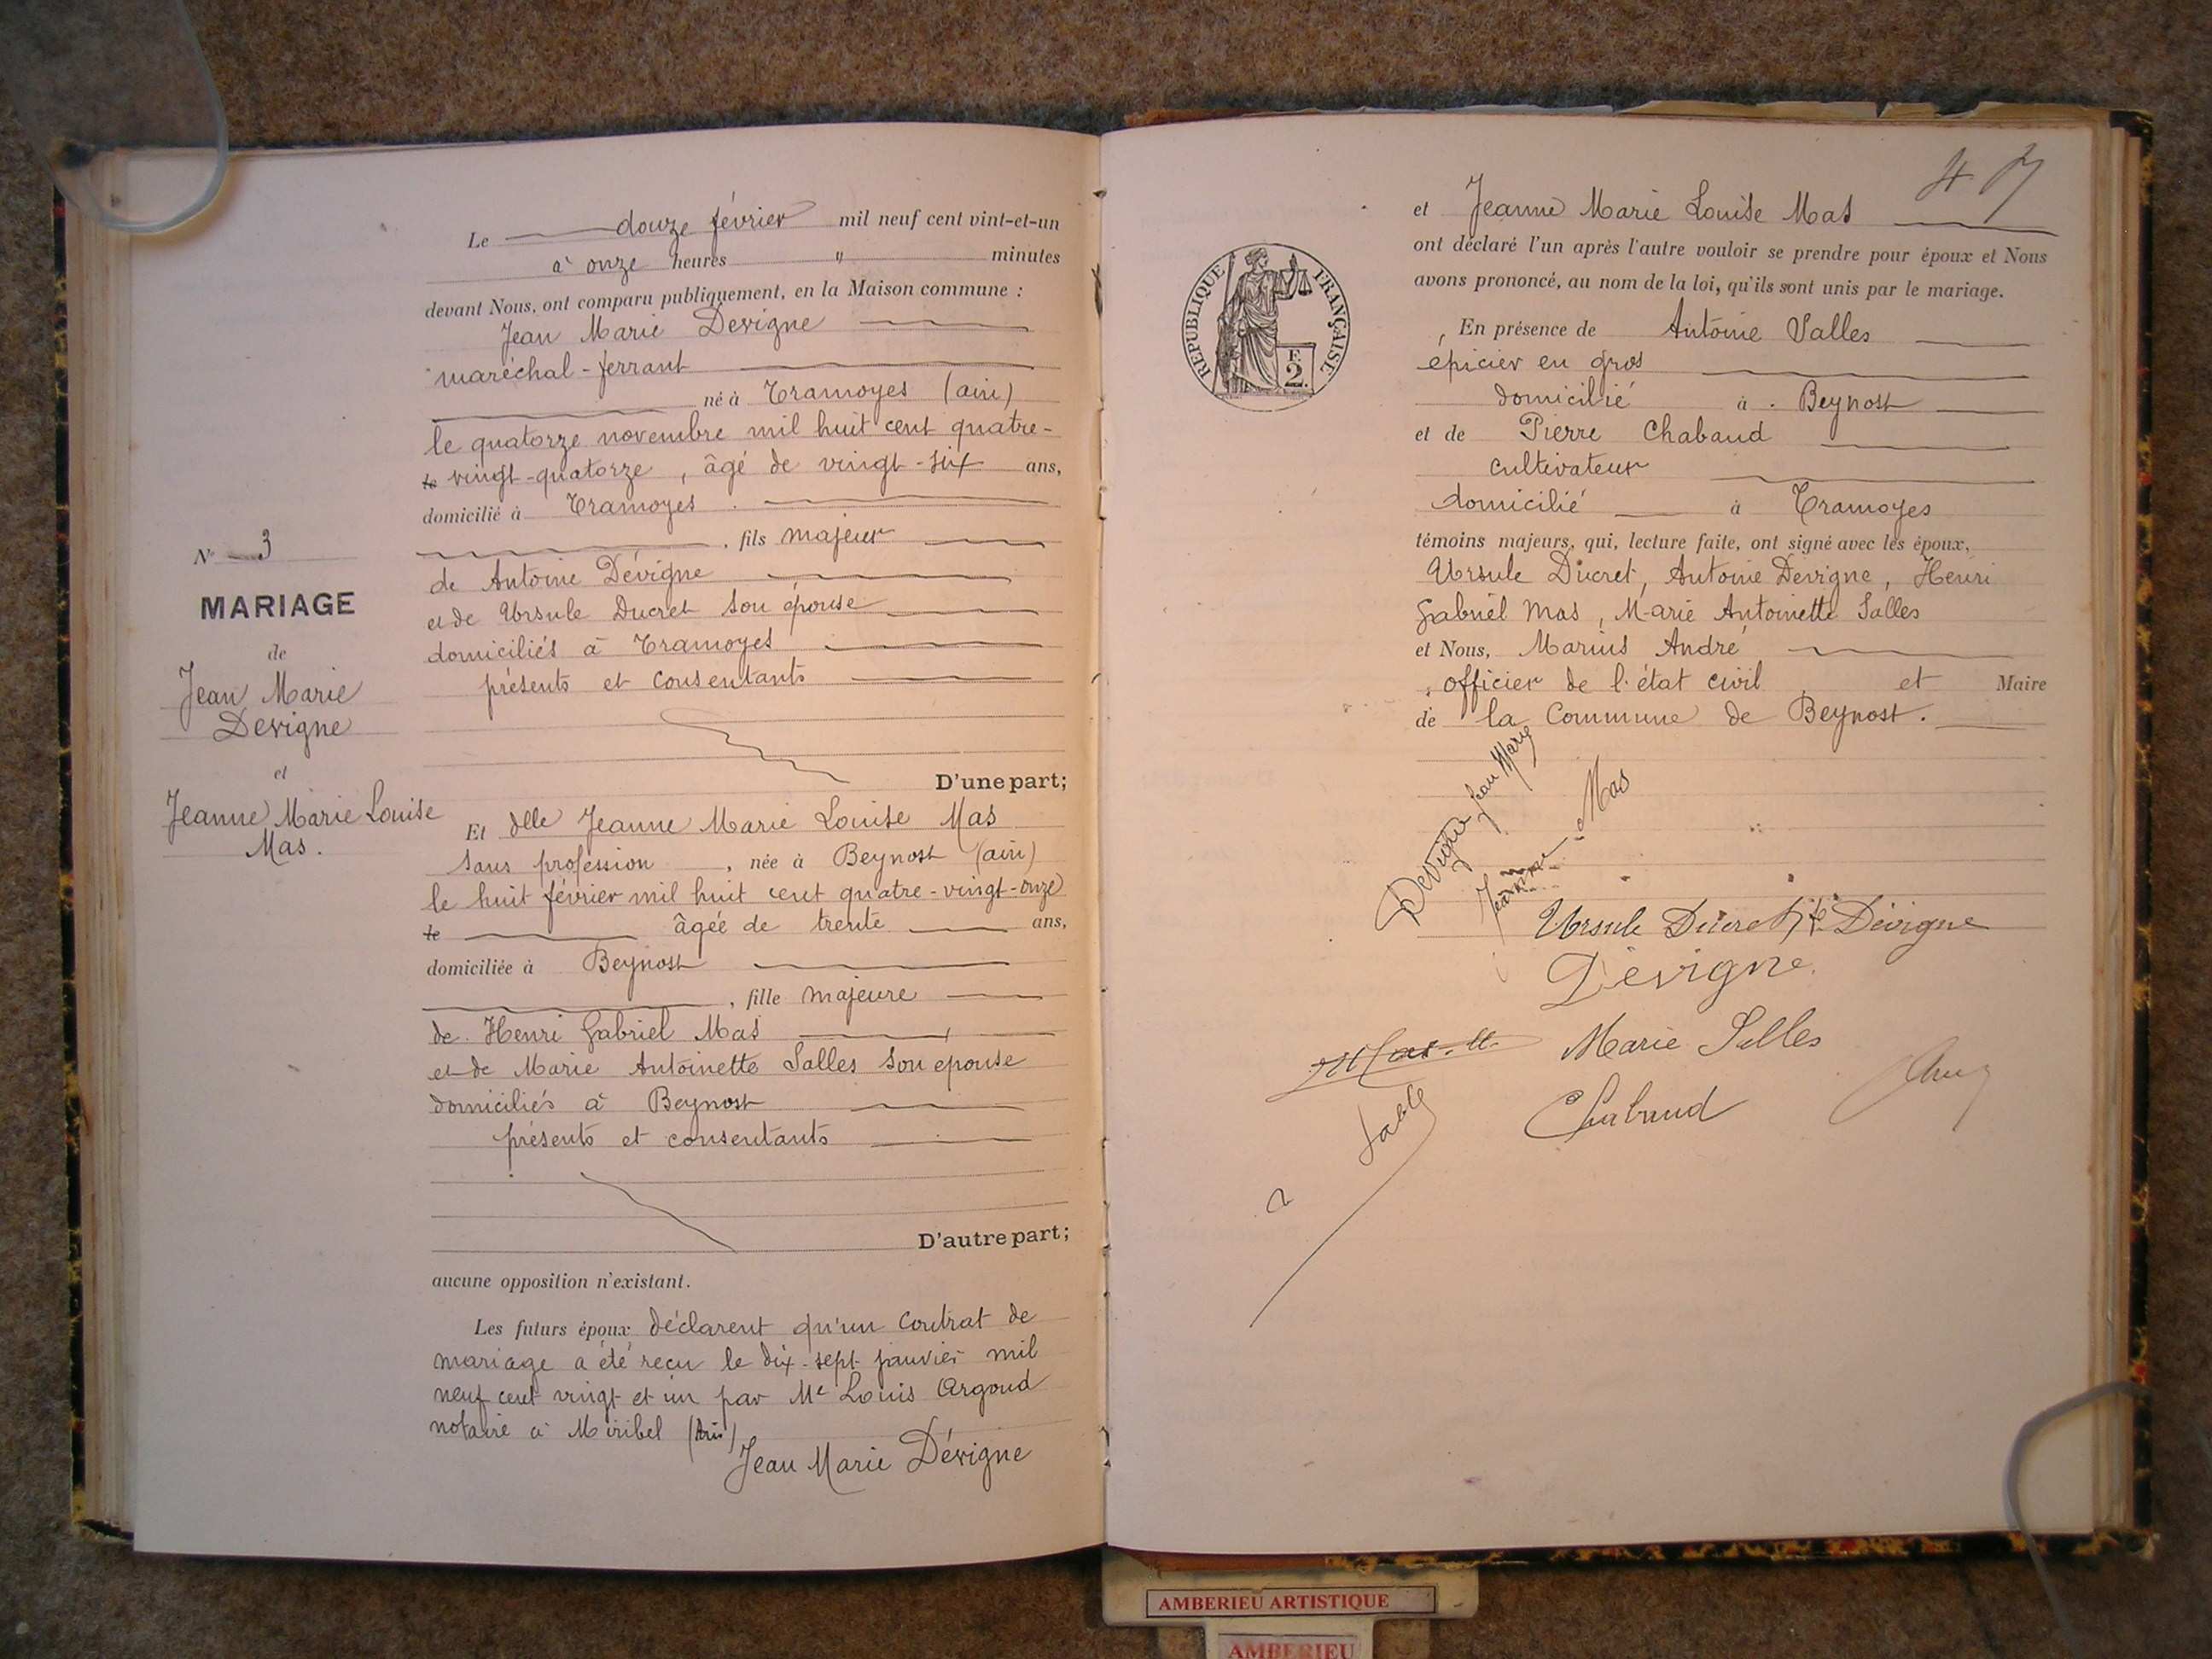 Le douze février mil neuf cent vint-et-un
à onze heures " minutes
devant Nous, ont comparu publiquement, en la Maison commune :
Jean Marie Devigne
maréchal-ferrant
né à Tramoyes (ain)
le quatorze novembre mil huit cent quatre-
le vingt-quatorze, âgé de vingt-six ans,
domicilié à Tramoyes
, fils majeur
de Antoine Dévigne
et de Ursule Ducret son épouse
domiciliés à Tramoyes
présents et consentants
D'une part;
N° 3
MARIAGE
de
Jean Marie
Devigne
et
Jeanne Marie Louise
Mas.
Et dlle Jeanne Marie Louise Mas
sans profession, née à Beynost (ain)
le huit février mil huit cent quatre-vingt-onze
le âgée de trente ans,
domiciliée à Beynost
, fille majeure
de Henri Gabriel Mas
et de Marie Antoinette Salles son epouse
domiciliés à Beynost
présents et consentants
D'autre part;
aucune opposition n'existant.
Les futurs époux déclarent qu'un contrat de
mariage a été reçu le dix-sept janvier mil
neuf cent vingt et un par Me Louis Argoud
notaire à Miribel (Ain)
Jean Marie Dévigne
47
et Jeanne Marie Louise Mas
ont déclaré l'un après l'autre vouloir se prendre pour époux et Nous
avons prononcé, au nom de la loi, qu'ils sont unis par le mariage.
REPUBLIQUE FRANÇAISE
F.
2.
, En présence de Antoine Salles
épicier en gros
domicilié à Beynost
et de Pierre Chabaud
cultivateur
domicilié à Tramoyes
témoins majeurs, qui, lecture faite, ont signé avec les époux,
Ursule Ducret, Antoine Devigne, Henri
Gabriel Mas, Marie Antoinette Salles
et Nous, Marius André
officier de l'état civil et Maire
de la Commune de Beynost.
Devigne Jean Marie
Jeanne Mas
Ursule Ducret fe Dévigne
Dévigne
Marie Salles
Chabaud
AMBERIEU ARTISTIQUE
AMBERIEU